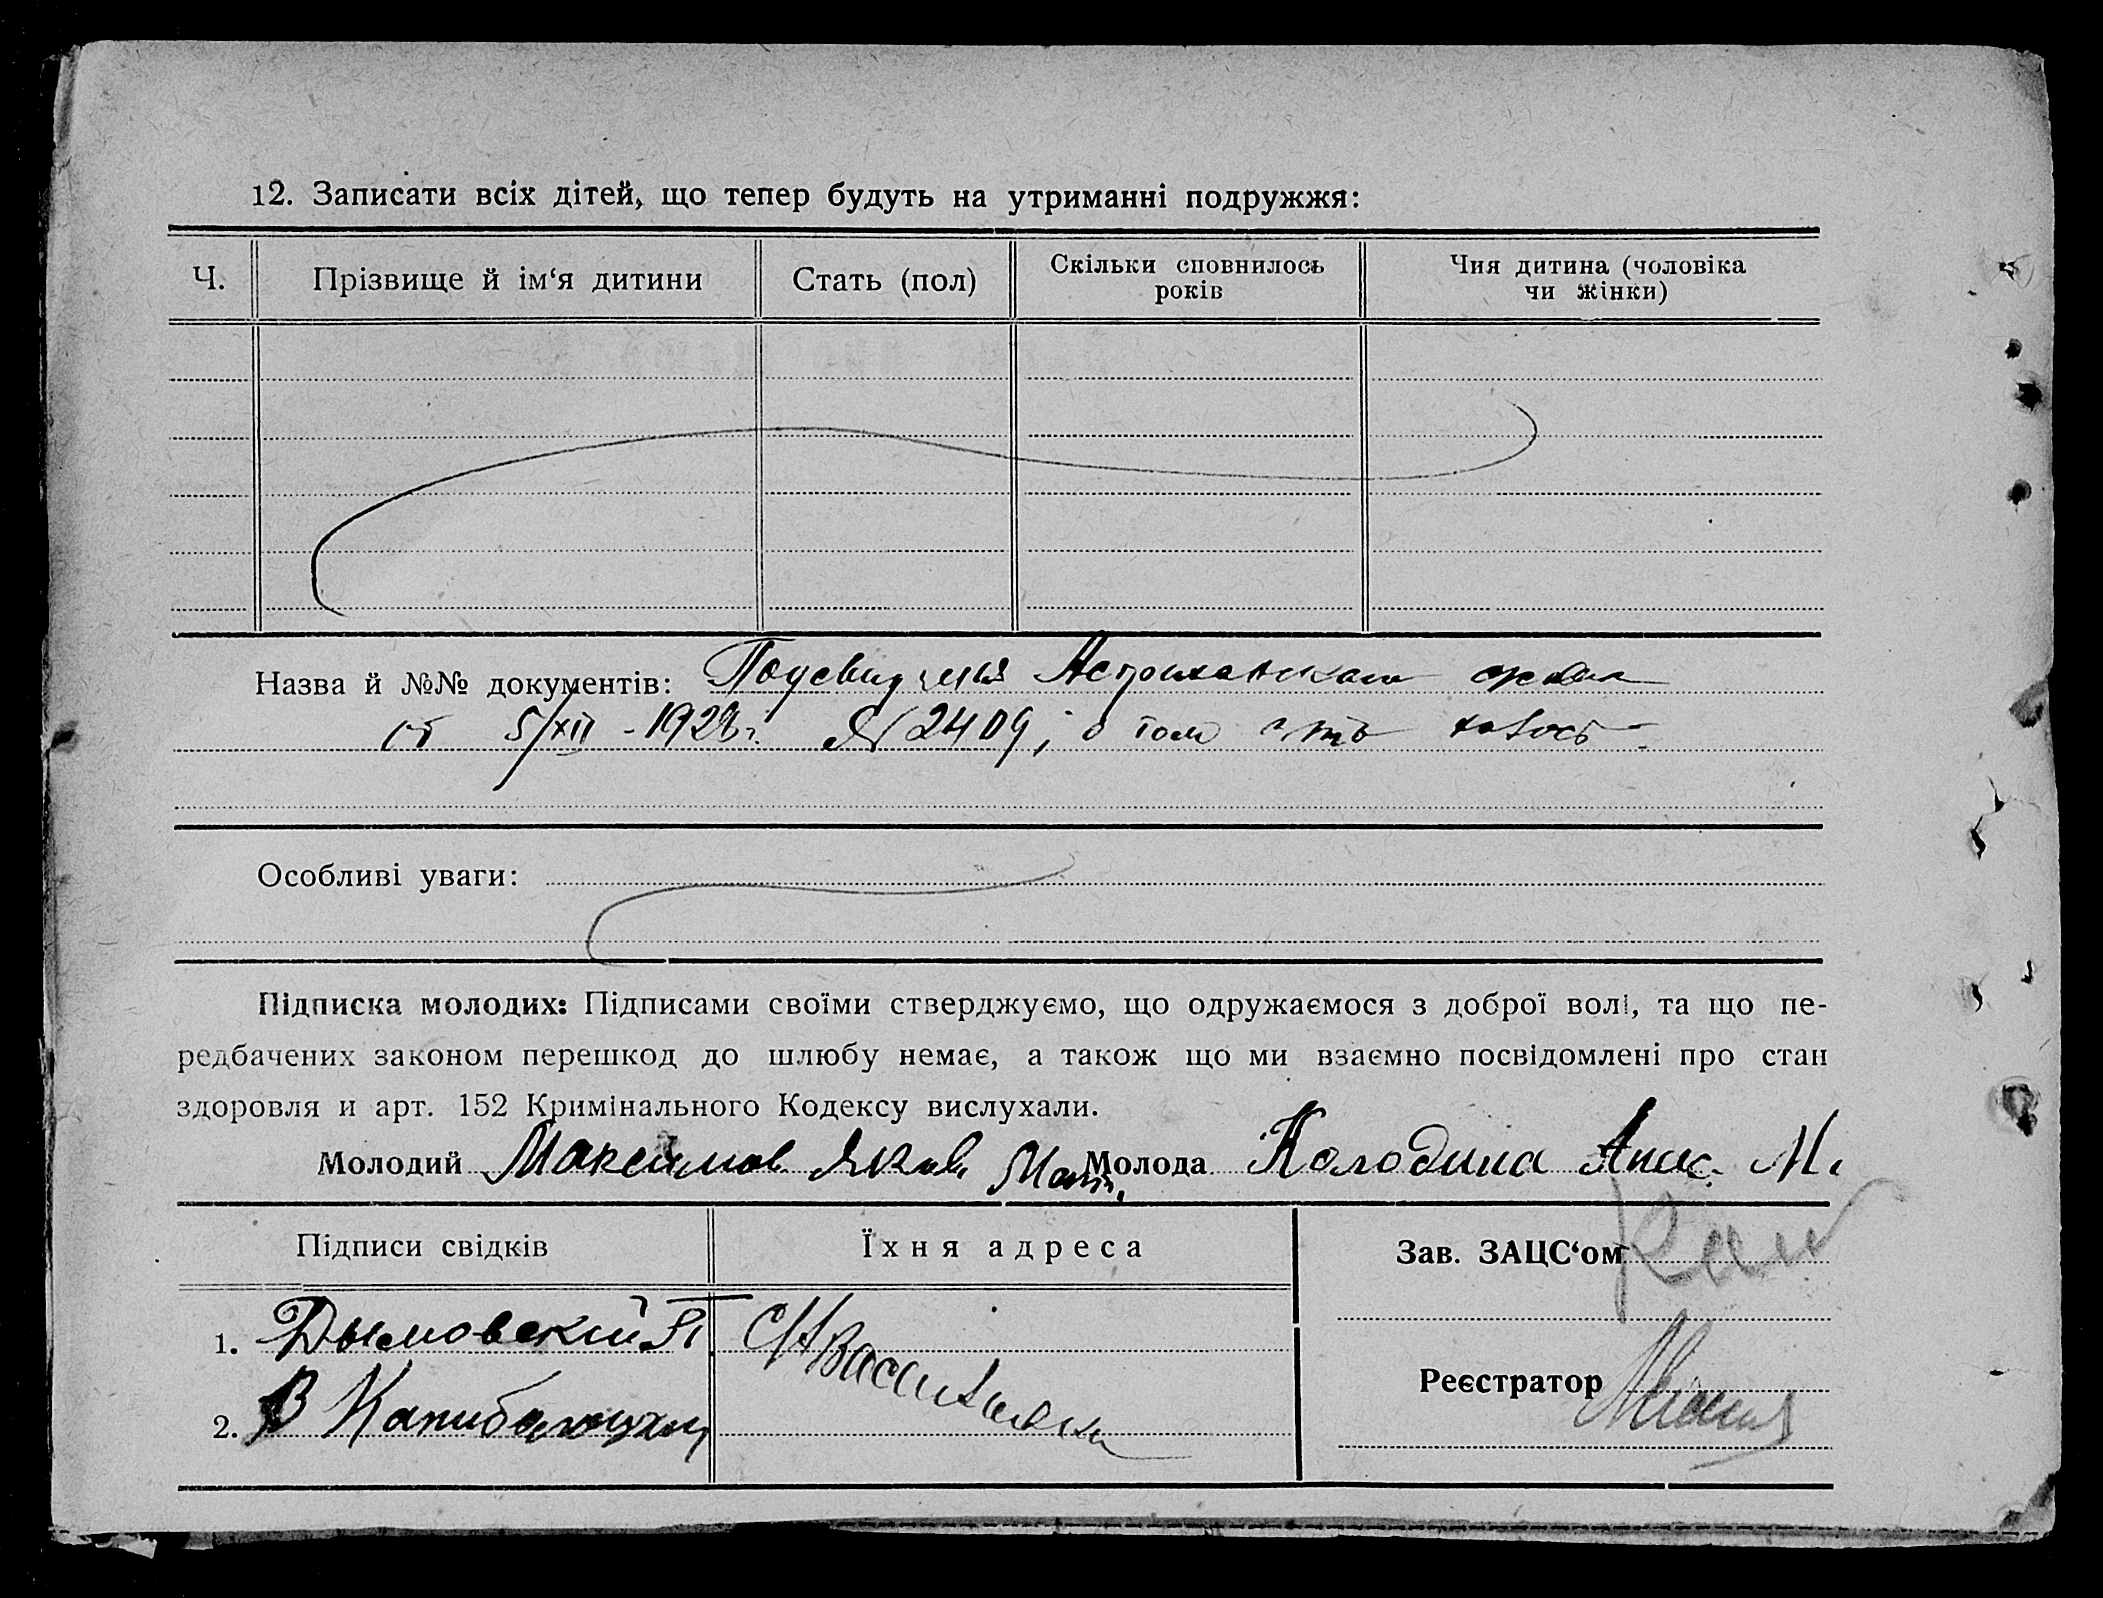 12. Записати всіх дітей, що тепер будуть на утриманні подружжя:
Ч. Прізвище й ім‘я дитини Стать (пол) Скільки сповнилось років Чия дитина (чоловіка чи жінки)
Назва й №№ документів: Астраханскаго
от 5/XII - 1923 г. № 2409, о том что
Особливі уваги:
Підписка молодих: Підписами своїми стверджуємо, що одружаємося з доброї волі, та що пе-
редбачених законом перешкод до шлюбу немає, а також що ми взаємно посвідомлені про стан
здоровля и арт. 152 Кримінального Кодексу вислухали.
Молодий Максимов Яков Мат. Молода Колодина Анис. М.
Підписи свідків Їхня адреса Зав. ЗАЦС‘ом
1. Дымовский П С/Н Васильевка
Реєстратор
2. В